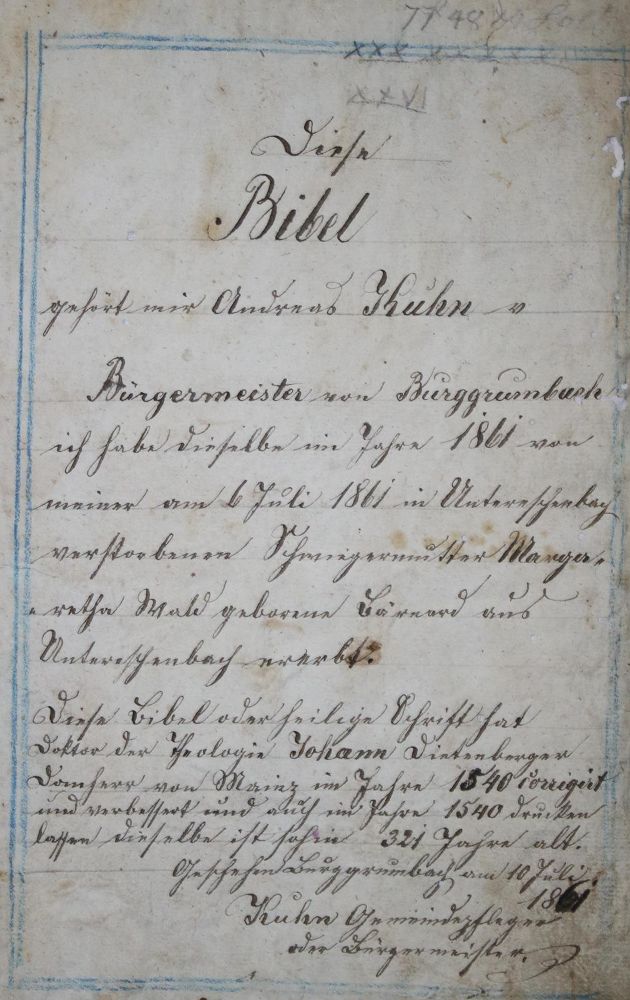 XXVI
Diese
Bibel
gehört mir Andreas Kuhn v
Bürgermeister von Burggrumbach
ich habe dieselbe im Jahre 1861 von
meiner am 6 Juli 1861 in Untereschenbach
verstorbenen Schwiegermutter Marga-
retha Wald geborene Bärnard aus
Untereschenbach ererbt.
Diese Bibel oder heilige Schrift hat
Doktor der Theologie Johann Dietenberger
Domherr von Mainz im Jahre 1540 corrigirt
und verbessert und auch im Jahre 1540 drucken
lassen dieselbe ist sohin 321 Jahre alt.
Geschehen Burggrumbach am 10 Juli
1861
Kuhn Gemeindepfleger
oder Bürgermeister.